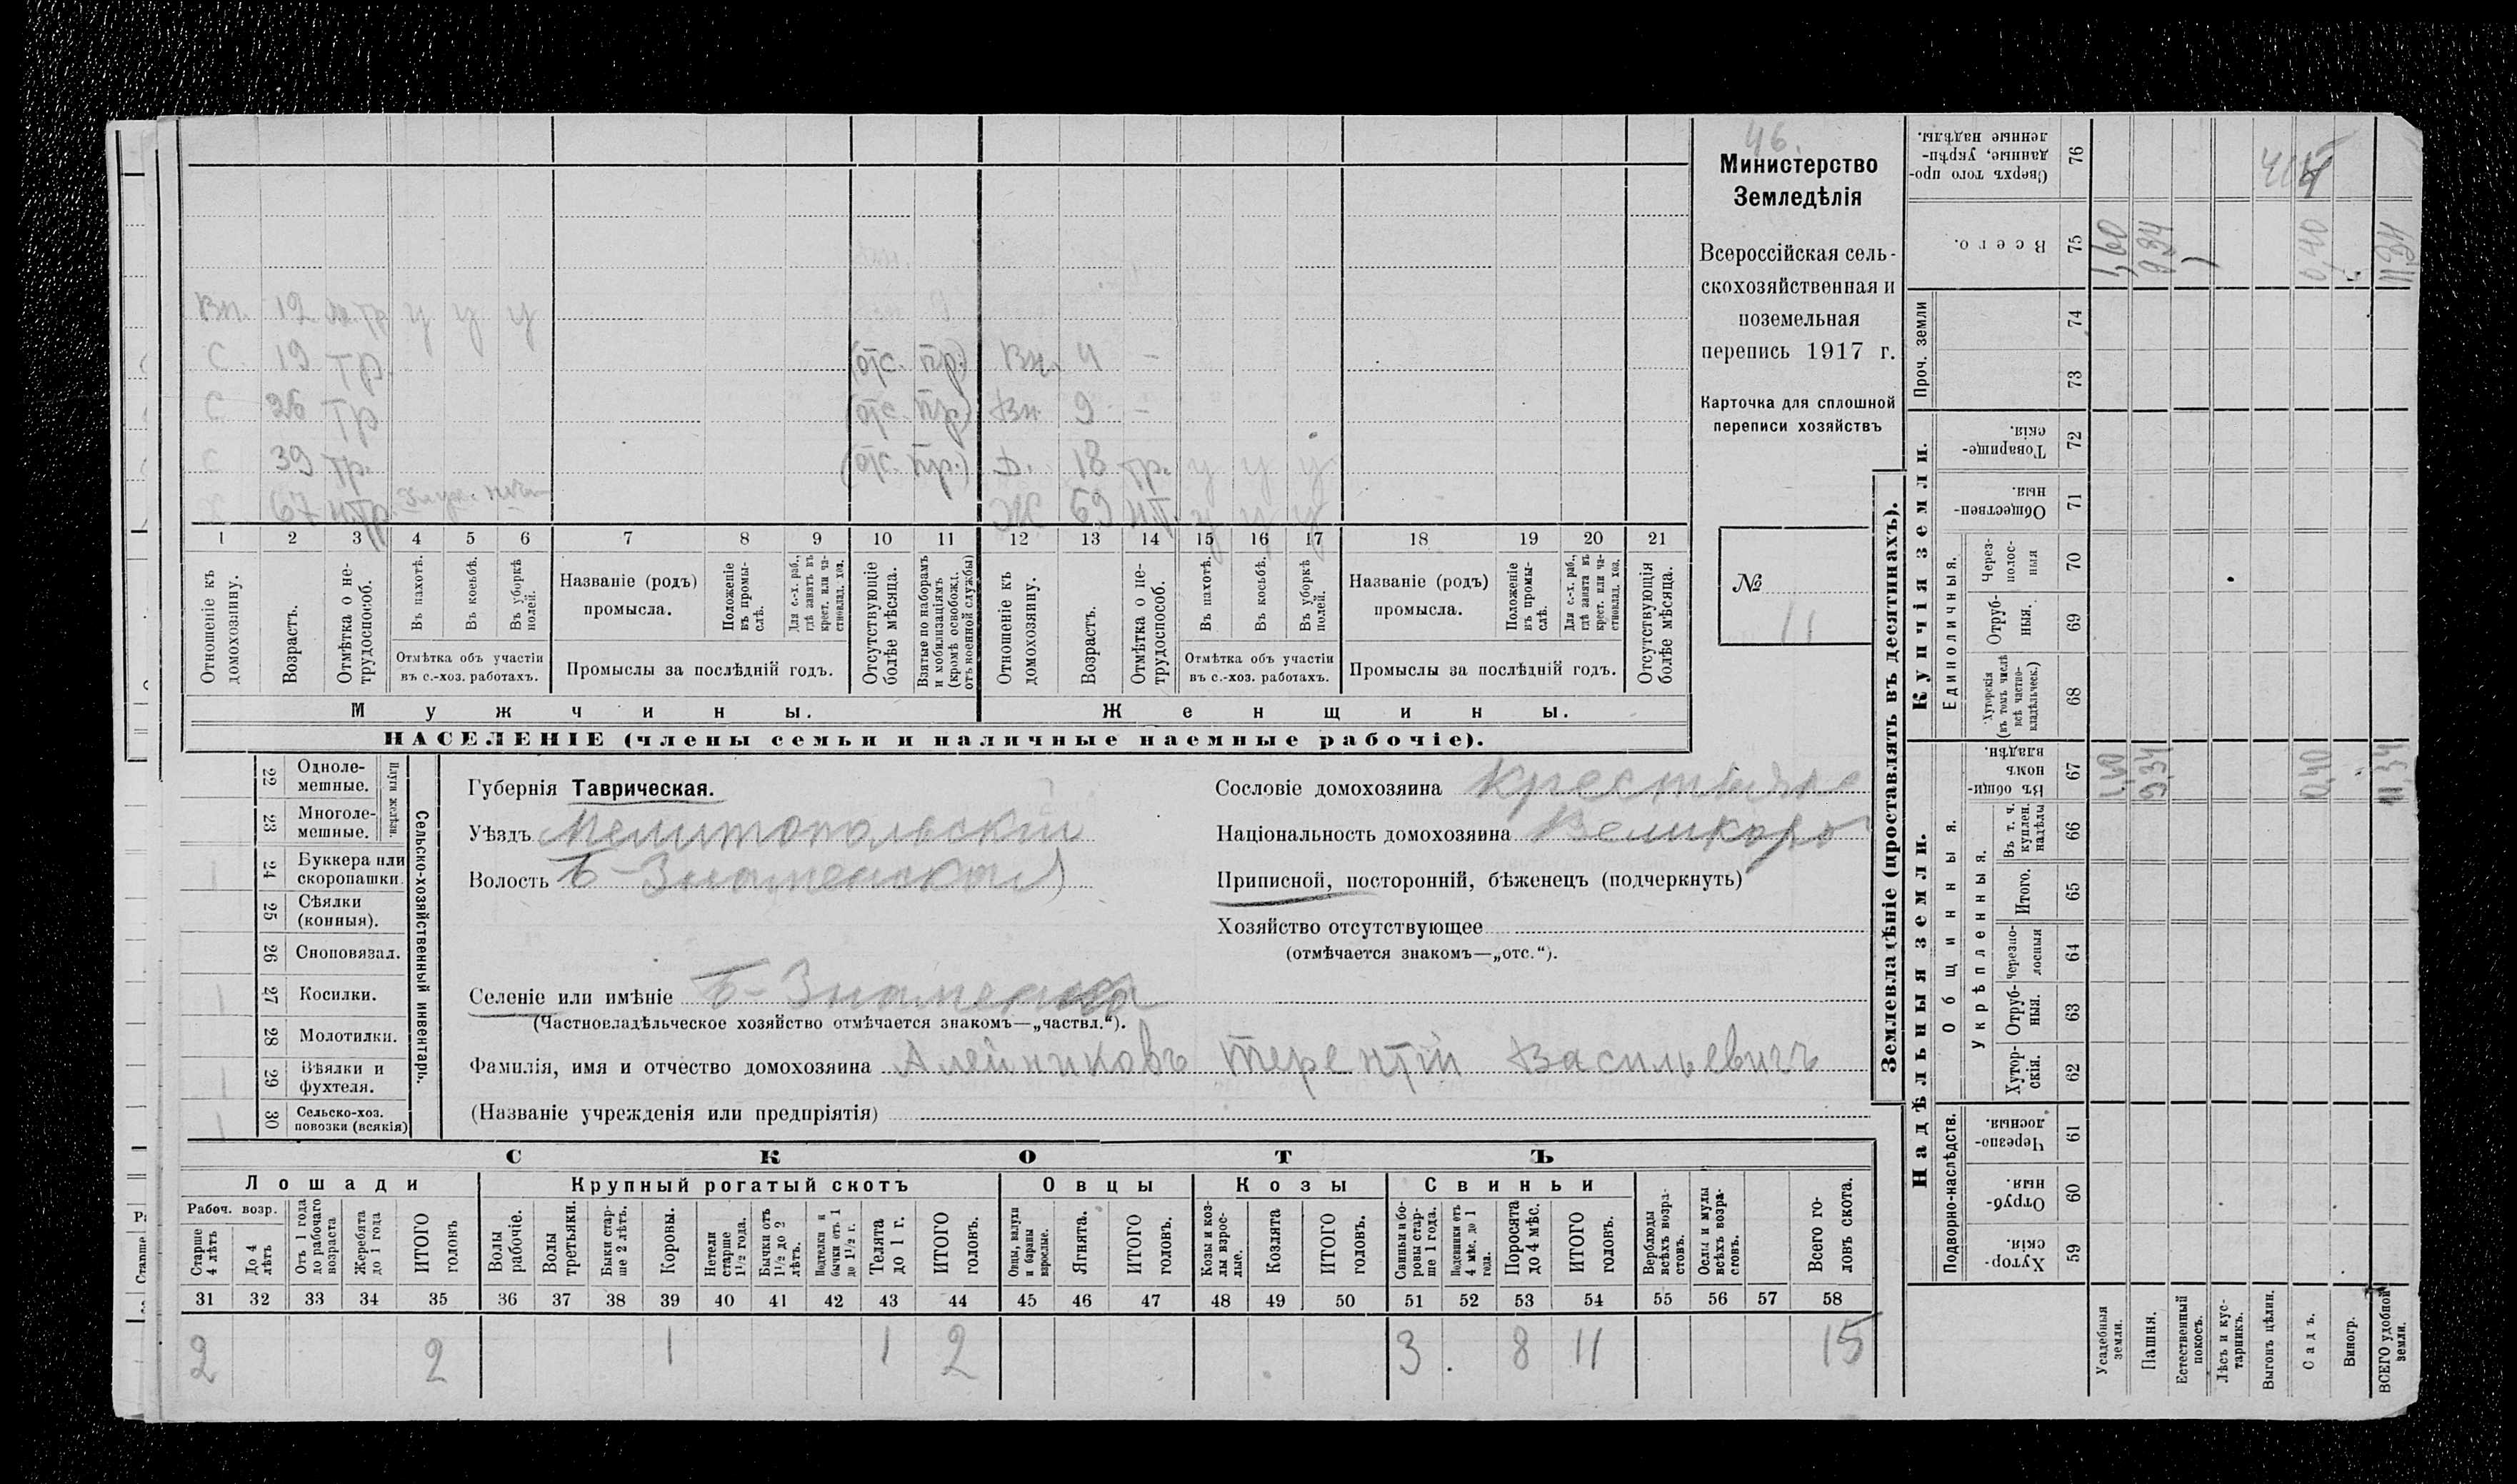 46.
Министерство
Земледѣлія
Всероссійская сель-
скохозяйственная и
поземельная
перепись 1917 г.
Карточка для сплошной
переписи хозяйствъ
№
11
Вн. 12 н.тр у у у
С. 19 тр. (отс. пр.) Вн. 4 –
С 26 тр (отс. пр) Вн. 9 –
С 39 тр. (отс. пр.) Д. 18 тр. у у у
Х 67 н.тр. Ж 69 н.т. у у у
1 2 3 4 5 6 7 8 9 10 11 12 13 14 15 16 17 18 19 20 21
Отношеніе къ домохозяину.
Возрастъ.
Отмѣтка о не-трудоспособ.
Въ пахотѣ.
Въ косьбѣ.
Въ уборкѣ полей.
Отмѣтка объ участіи
въ с.-хоз. работахъ.
Названіе (родъ)
промысла.
Положеніе въ промы-слѣ.
Для с.-х. раб., гдѣ занятъ въ крест. или ча-стновлад. хоз.
Промыслы за послѣдній годъ.
Отсутствующіе болѣе мѣсяца.
Взятые по наборамъ и мобилизаціямъ (кромѣ освобожд. отъ военной службы)
Отношеніе къ домохозяину.
Возрастъ.
Отмѣтка о не-трудоспособ.
Въ пахотѣ.
Въ косьбѣ.
Въ уборкѣ полей.
Отмѣтка объ участіи
въ с.-хоз. работахъ.
Названіе (родъ)
промысла.
Положеніе въ промы-слѣ.
Для с.-х. раб., гдѣ занята въ крест. или ча-стновлад. хоз.
Промыслы за послѣдній годъ.
Отсутствующія болѣе мѣсяца.
Мужчины. Женщины.
НАСЕЛЕНІЕ (члены семьи и наличные наемные рабочіе).
Сельско-хозяйственный инвентарь.
Плуги желѣзн.
22 Одноле-мешные.
23 Многоле-мешные.
1 24 Буккера или скоропашки.
25 Сѣялки (конныя).
26 Сноповязал.
1 27 Косилки.
28 Молотилки.
1 29 Вѣялки и фухтеля.
1 30 Сельско-хоз. повозки (всякія)
Губернія Таврическая.
Уѣздъ Мелитопольскій
Волость Б-Знаменская
Сословіе домохозяина Крестьяне
Національность домохозяина Великоро
Приписной, посторонній, бѣженецъ (подчеркнуть)
Хозяйство отсутствующее
(отмѣчается знакомъ—„отс.“).
Селеніе или имѣніе Б-Знаменка
(Частновладѣльческое хозяйство отмѣчается знакомъ—„частвл.“).
Фамилія, имя и отчество домохозяина Алейниковъ Терентій Васильевичъ
(Названіе учрежденія или предпріятія)
СКОТЪ
Лошади Крупный рогатый скотъ Овцы Козы Свиньи
Рабоч. возр.
Старше 4 лѣтъ
До 4 лѣтъ
Отъ 1 года до рабочаго возраста
Жеребята до 1 года
ИТОГО головъ
Волы рабочіе.
Волы третьяки.
Быки стар-ше 2 лѣтъ.
Коровы.
Нетели старше 1½ года.
Бычки отъ 1½ до 2 лѣтъ.
Подтелки и бычки отъ 1 до 1½ г.
Телята до 1 г.
ИТОГО головъ.
Овцы, валухи и бараны взрослые.
Ягнята.
ИТОГО головъ.
Козы и коз-лы взрос-лые.
Козлята
ИТОГО головъ.
Свиньи и бо-ровы стар-ше 1 года.
Подсвинки отъ 4 мѣс. до 1 года.
Поросята до 4 мѣс.
ИТОГО головъ.
Верблюды всѣхъ возра-стовъ.
Ослы и мулы всѣхъ возра-стовъ.
Всего го-ловъ скота.
31 32 33 34 35 36 37 38 39 40 41 42 43 44 45 46 47 48 49 50 51 52 53 54 55 56 57 58
2 2 1 1 2 3 8 11 15
Землевладѣніе (проставлять въ десятинахъ).
Надѣльныя земли. Купчія земли. Проч. земли
Подворно-наслѣдств.
Общинныя.
Укрѣпленныя.
Единоличныя.
Хутор-скія. 59
Отруб-ныя. 60
Черезпо-лосныя. 61
Хутор-скія. 62
Отруб-ныя. 63
Черезпо-лосныя 64
Итого. 65
Въ т. ч. куплен. надѣлы 66
Въ общи-номъ владѣн. 67
Хуторскія (въ томъ числѣ всѣ частно-владѣльческ.) 68
Отруб-ныя. 69
Через-полос-ныя 70
Обществен-ныя. 71
Товарище-скія. 72
73
74
Всего. 75
Сверхъ того про-данные, укрѣп-ленные надѣлы. 76
Усадебныя земли. 1,60 1,60
Пашня. 9,34 9,34
Естественный покосъ.
Лѣсъ и кус-тарникъ.
Выгонъ цѣлин.
Садъ. 0,40 0,40
Виногр.
ВСЕГО удобной земли. 11,34 11,34